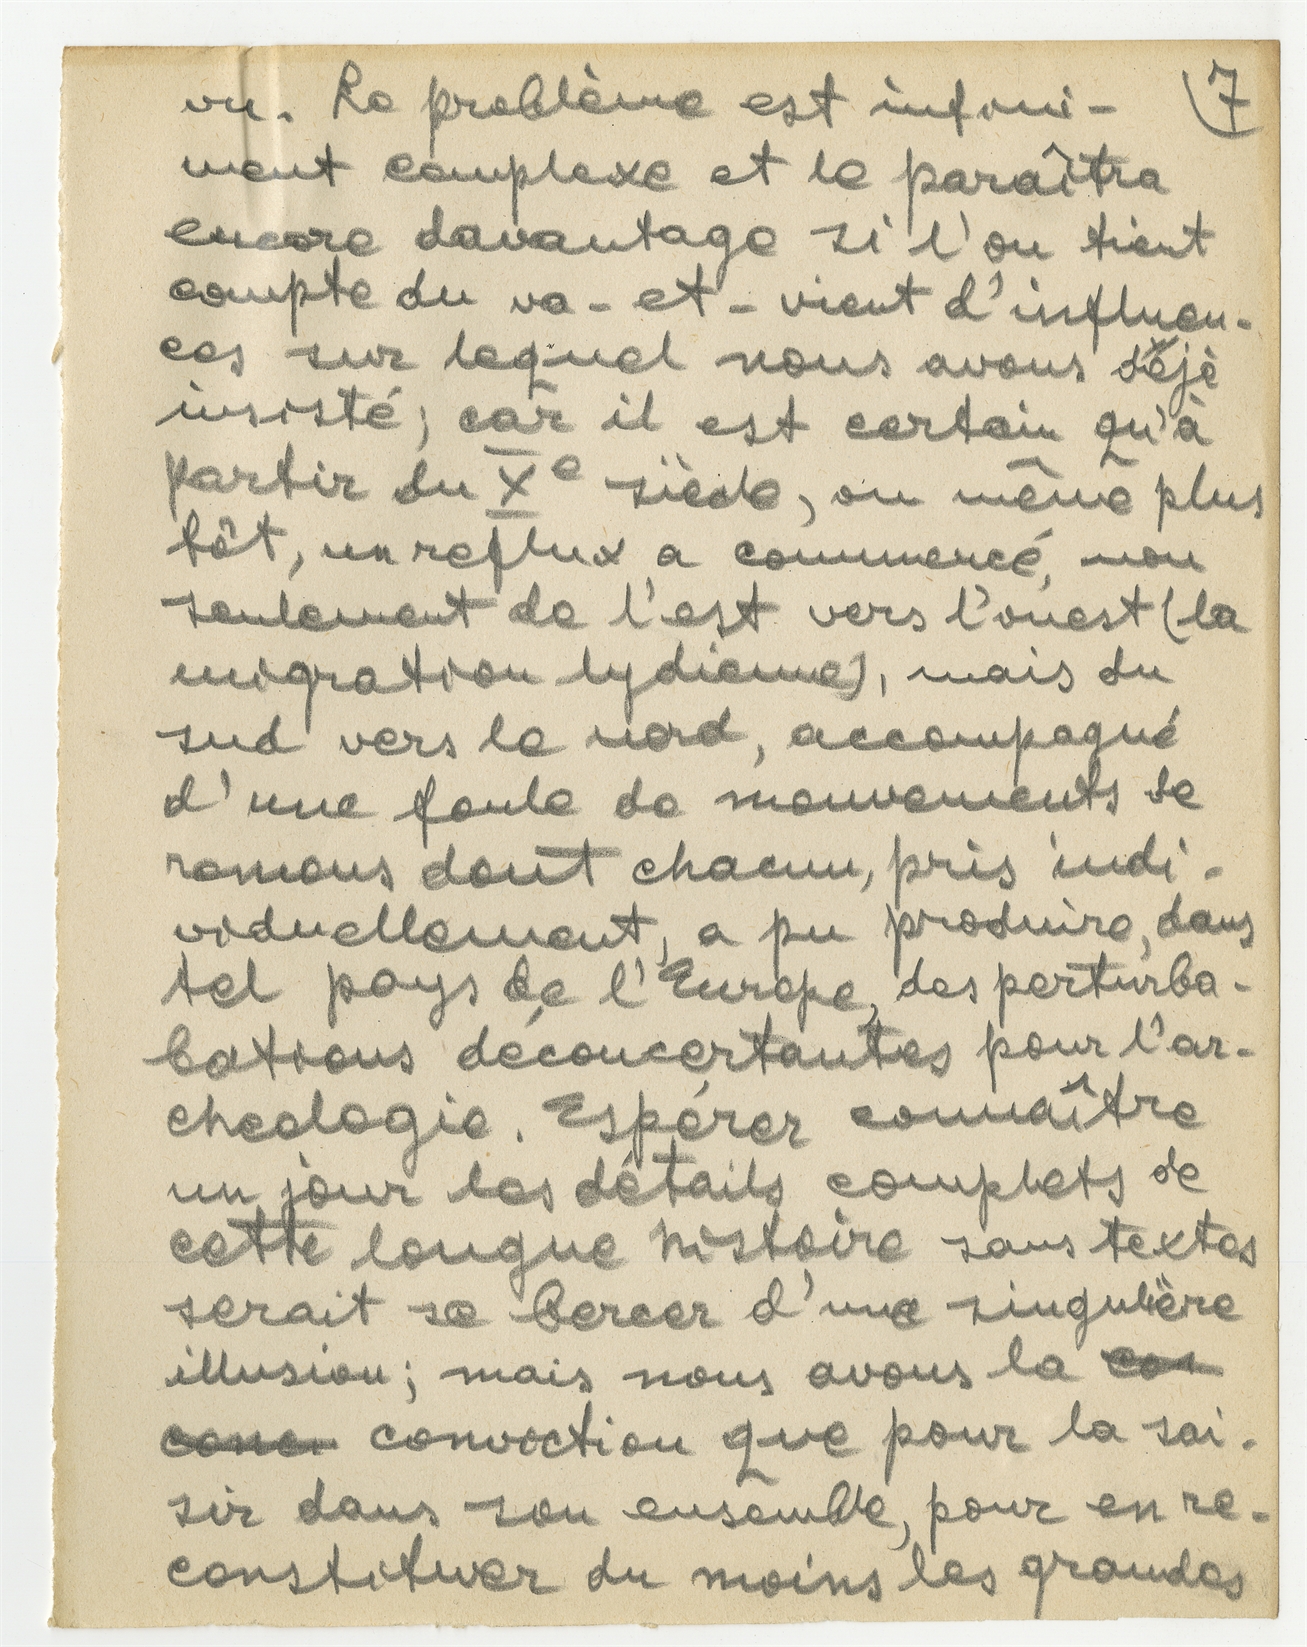 7
vu. Le problème est infini-
ment complexe et le paraîtra
encore davantage si l'on tient
compte du va-et-vient d'influen-
ces sur lequel nous avons déjà
insisté; car il est certain qu'à
partir du Xe siècle, ou même plus
tôt, un reflux a commencé, non
seulement de l'est vers l'ouest (la
migration lydienne), mais du
sud vers le nord, accompagné
d'une foule de mouvements de
remous dont chacun, pris indi-
viduellement, a pu produire, dans
tel pays de l'Europe, des perturba-
bations déconcertantes pour l'ar-
cheologie. Espérer connaître
un jour les détails complets de
cette longue histoire sans textes
serait se bercer d'une singulière
illusion; mais nous avons la con
conc. conviction que pour la sai-
sir dans son ensemble, pour en re-
constituer du moins les grandes